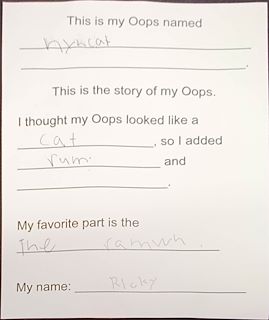 This is my Oops named
nyncat
This is the story of my Oops.
I thought my Oops looked like a
cat, so I added
rum. and
.
My favorite part is the
The
My name: Ricky